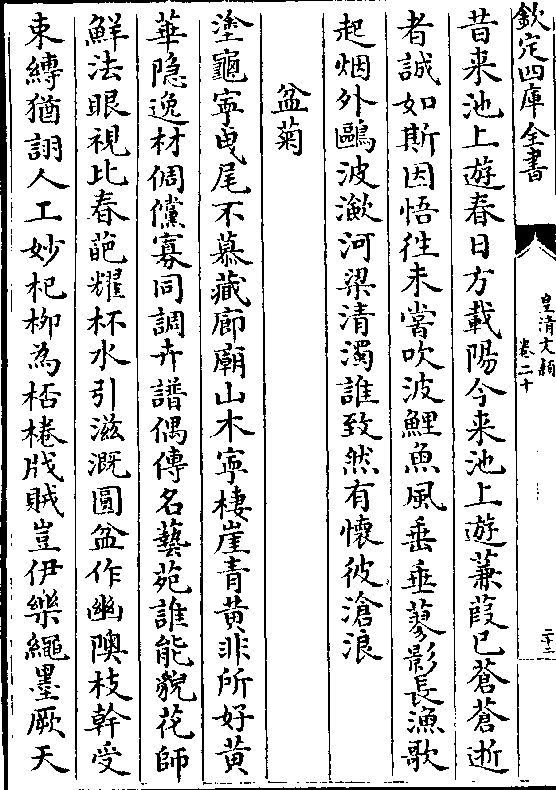 欽定四庫全書
皇清文穎
卷二十
二十二
昔来池上遊春日方載陽今来池上遊蒹葭已蒼蒼逝
者誠如斯因悟徃未嘗吹波鯉魚風垂垂蓼影長漁歌
起烟外鷗波瀲河梁清濁誰致然有懷彼滄浪
盆菊
塗龜寧曳尾不慕藏廊廟山木寧棲崖青黄非所好黄
華隐逸材倜儻寡同調卉譜偶傳名藝苑誰能貌花師
鮮法眼視比春葩耀杯水引滋溉圓盆作幽隩枝幹受
束縛猶詡人工妙杞栁為桮棬戕賊豈伊樂繩墨厥天